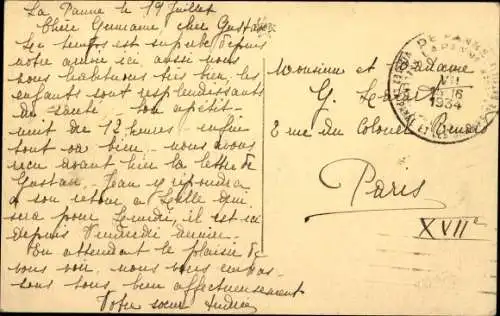 La Panne le 19 Juillet
Chère Germaine, cher Gustave
Le temps est superbe depuis
notre arrivée ici, aussi nous
nous habituons très bien, les
enfants sont resplendissants
de santé, bon apétit
nuit de 12 heures - enfin
tout va bien - nous avons
reçu avant hier la lettre de
Gustave, Jean y répondra
à son retour à qui
sera pour Lundi, il est ici
depuis Vendredi dernier.
En attendant le plaisir de
vous voir, nous vous embras-
sons tous bien affectueusement
Votre soeur Andrée
DE PANNE
LA PANNE
VII
16
1934
Monsieur et Madame
G.
2 rue du Colonel
Paris
XVIIe